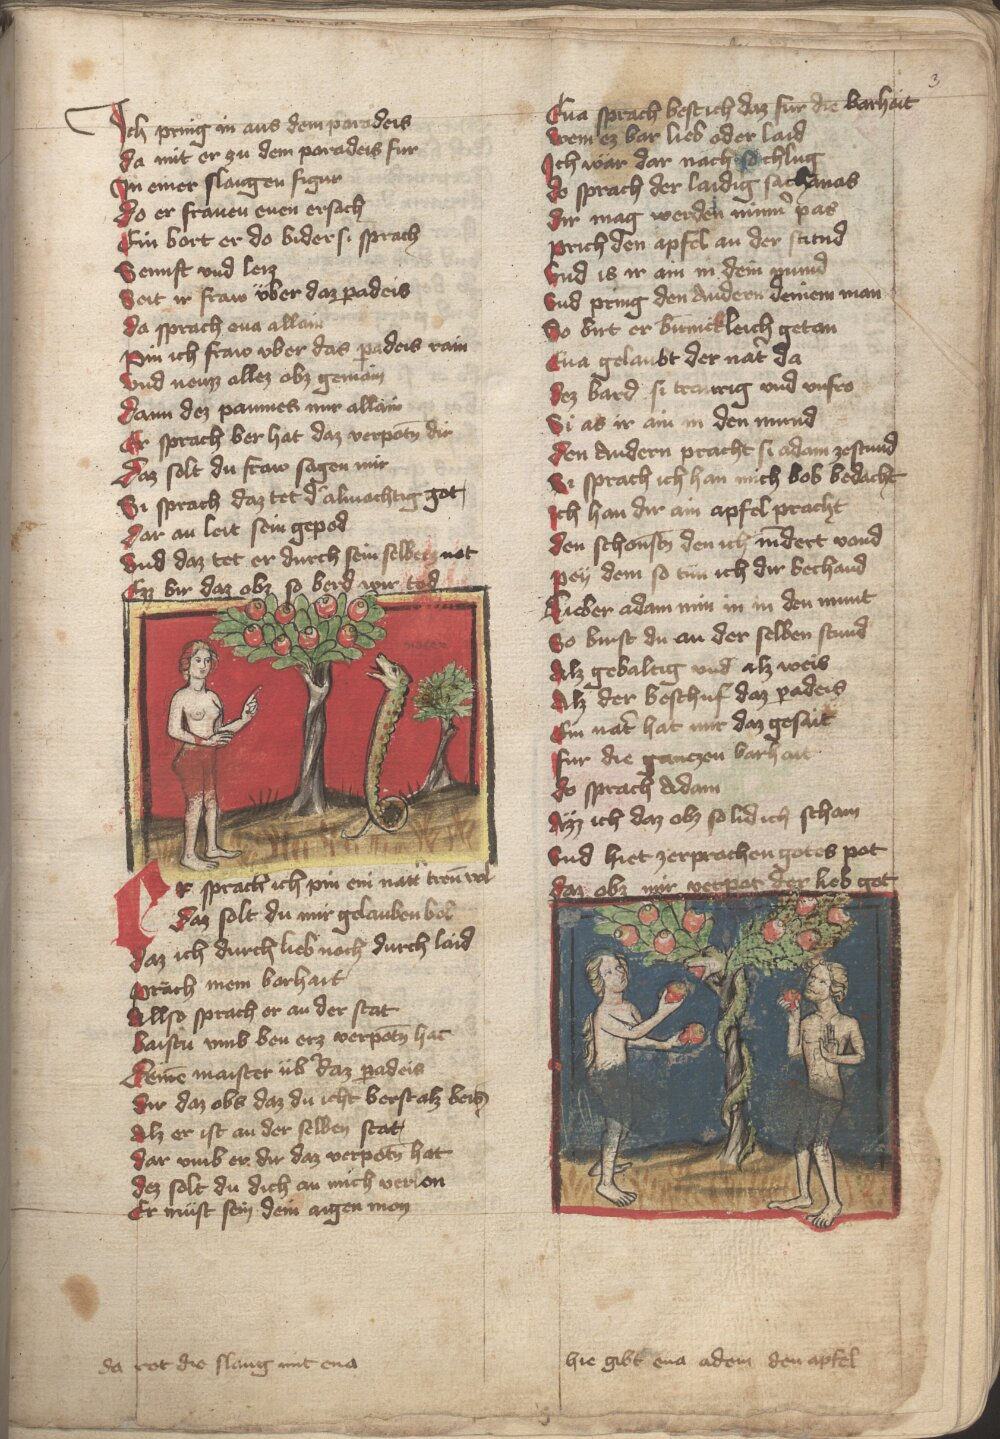 3
Ich pring in aus dem paradeis
da mit er zu dem paradeis fur
In einer slangen figur
do er frauen euen ersach
Ein bort er do bider si sprach
Sennft und leiz
Seit ir fraw über daz padeis
da sprach eua allain
Pin ich fraw vber das padeis rain
Vnd neuzz allez obz gemain
dann dez paumes nur allain
Er sprach ber hat daz verpotn dir
daz solt du fraw sagen mir
Si sprach daz tet d almachtig got
dar an leit sein gepod
Vnd daz tet er durch sein selbez not
Ezz bir daz obz so berd wir tod
Er sprach ich pin ein natr treun vol
daz solt du mir gelauben bol
daz ich durch lieb noch durch laid
Prach mein barhait
Allso sprach er an der stat
baistu vmb ben erz verpotn hat
deine maister üb daz padeis
dir daz obs daz du icht berst alz beis
Alz er ist an der selben stat
dar vmb er dir daz verpotn hat
dez solt du dich an mich verlon
Er müst sein dein aigen man
da rot die slang mit eua
Eua sprach best ich daz für die barhait
wem ez bar lieb oder laid
Ich war dar nach so chlug
do sprach der laidig sathanas
dir mag werden nimr pas
prich den apfel an der stund
Vnd is ir ain in dein mund
Vnd pring den Andern deinem man
So birt er bunickleich getan
Eua gelaubt der natr da
dez bard si traurig und vnfro
Si as ir ain in den mund
den Andern pracht si adam zestund
Si sprach ich han mich bob bedacht
Ich han dir ain apfel pracht
den schonstn den ich indert vand
pey dem so tün ich dir bechand
Lieber adam nim in in den munt
So birst du an der selben stund
Alz gebaltig und alz weis
Alz der beschuf daz padeis
Ein natr hat mir daz gesait
für die ganczen barhait
do sprach Adam
Azz ich daz obz so lid ich scham
Vnd hiet zerprochen gotes pot
daz obz mir verpot der lieb got
hie gibt eua adem den apfel